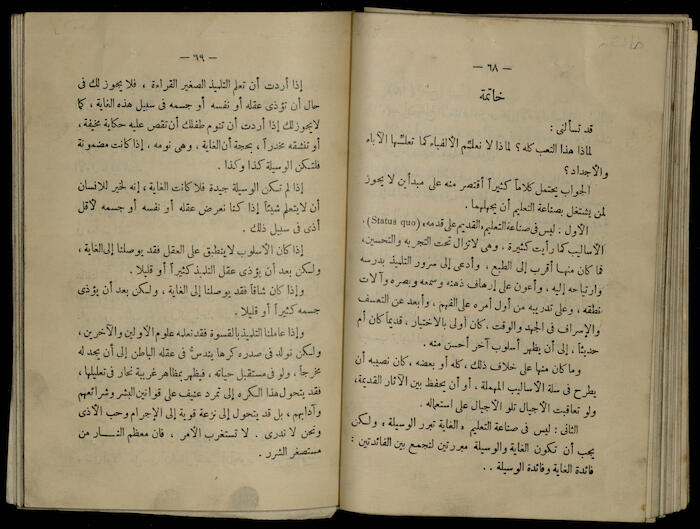 — ٦٨ —
خاتمة
قد تسألنى :
لماذا هذا التعب كله ؟ لماذا لا نعلّم الألفباء كما تعلّمها الآباء
والأجداد ؟
الجواب يحتمل كلاماً كثيراً أقتصر منه على مبدأين لا يجوز
لمن يشتغل بصناعة التعليم أن يجهلهما .
الأول : ليس فى صناعة التعليم «القديم على قدمه» (Status quo).
الأساليب كما رأيت كثيرة . وهى لاتزال تحت التجربة والتحسين،
فما كان منها أقرب إلى الطبع ، وأدعى إلى سرور التلميذ بدرسه
وارتياحه إليه ، وأعون على إرهاف ذهنه وسمعه وبصره وآلات
نطقه ، وعلى تدريبه من أول أمره على الفهم ، وأبعد عن التعسف
والإسراف فى الجهد والوقت ، كان أولى بالاختيار ، قديماً كان أم
حديثاً ، إلى أن يظهر أسلوب آخر أحسن منه .
وما كان منها على خلاف ذلك ، كله أو بعضه ، كان نصيبه أن
يطرح فى سلة الأساليب المهملة ، أو أن يحفظ بين الآثار القديمة،
ولو تعاقبت الأجيال تلو الأجيال على استعماله .
الثانى : ليس فى صناعة التعليم «الغاية تبرر الوسيلة» ولكن
يجب أن تكون الغاية والوسيلة مبررتين لنجمع بين الفائدتين :
فائدة الغاية وفائدة الوسيلة . .
— ٦٩ —
إذا أردت أن تعلم التلميذ الصغير القراءة ، فلا يجوز لك فى
حال أن تؤذى عقله أو نفسه أو جسمه فى سبيل هذه الغاية ، كما
لايجوز لك إذا أردت أن تنوم طفلك أن تقص عليه حكاية مخيفة ،
أو تنشقه مخدراً ، بحجة أن الغاية ، وهى نومه ، إذا كانت مضمونة
فلتكن الوسيلة كذا وكذا .
إذا لم تكن الوسيلة جيدة فلا كانت الغاية ، إنه لخير للانسان
أن لايتعلم شيئاً إذا كنا نعرض عقله أو نفسه أو جسمه لأقل
أذى فى سبيل ذلك .
إذا كان الأسلوب لاينطبق على العقل فقد يوصلنا إلى الغاية ،
ولكن بعد أن يؤذى عقل التلميذ كثيراً أو قليلا .
وإذا كان شاقاً فقد يوصلنا إلى الغاية ، ولكن بعد أن يؤذى
جسمه كثيراً أو قليلا .
وإذا عاملنا التلميذ بالقسوة فقد نعلمه علوم الأولين والآخرين ،
ولكن نولد فى صدره كرها يندسّ فى عقله الباطن إلى أن يجد له
مخرجاً ، ولو فى مستقبل حياته ، فيظهر بمظاهر غريبة نحار فى تعليلها ،
فقد يتحول هذا الكره إلى تمرد عنيف على قوانين البشر وشرائعهم
وآدابهم ، بل قد يتحول إلى نزعة قوية إلى الإجرام وحب الأذى
ونحن لا ندرى . لا تستغرب الأمر ، فان معظم النــار من
مستصغر الشرر .